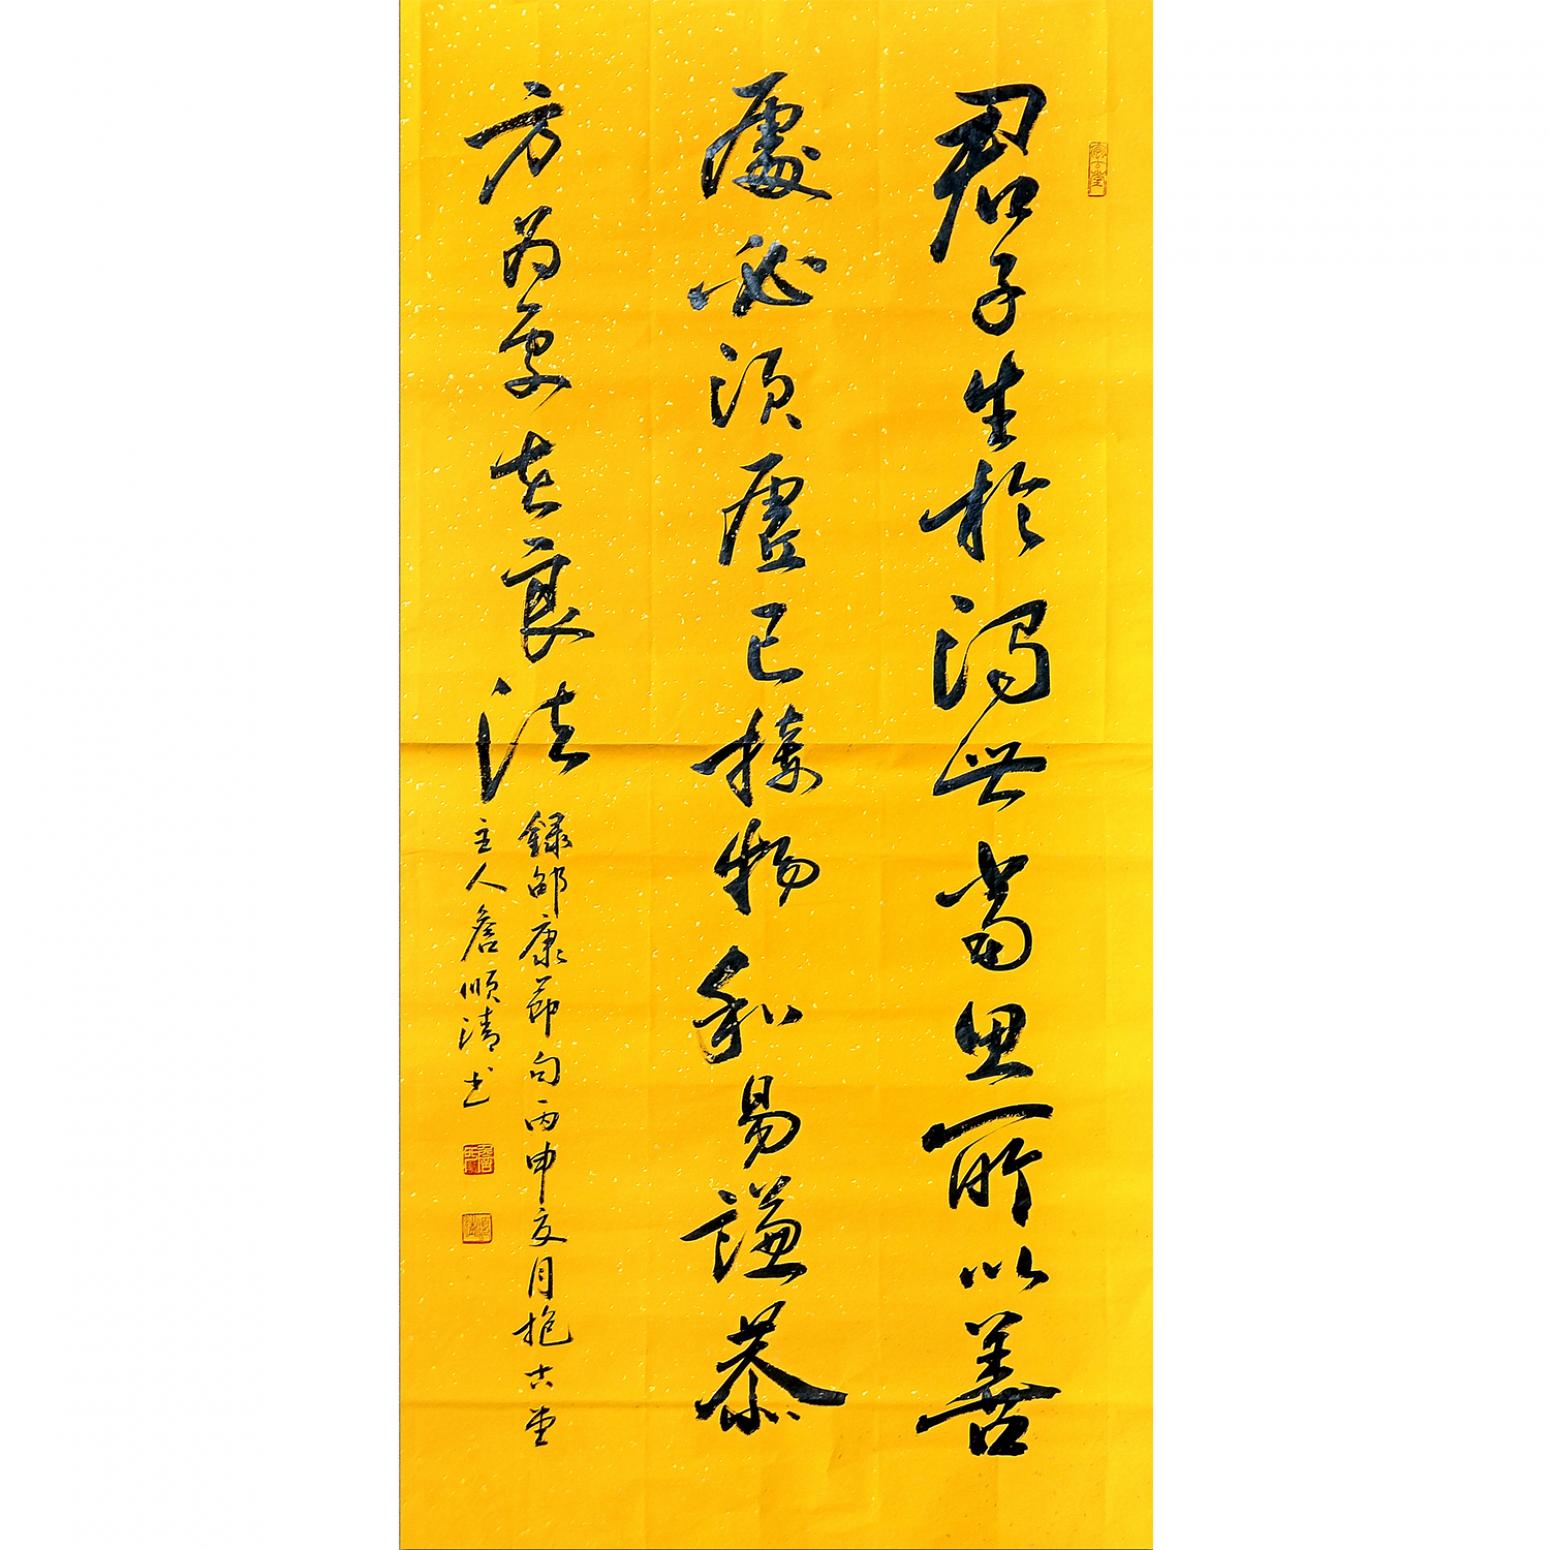 君子生於濁世當思所以善
處必須虛己接物和易謙恭
方為處世良法
錄邵康節句丙申夏月抱古堂
主人詹順清書